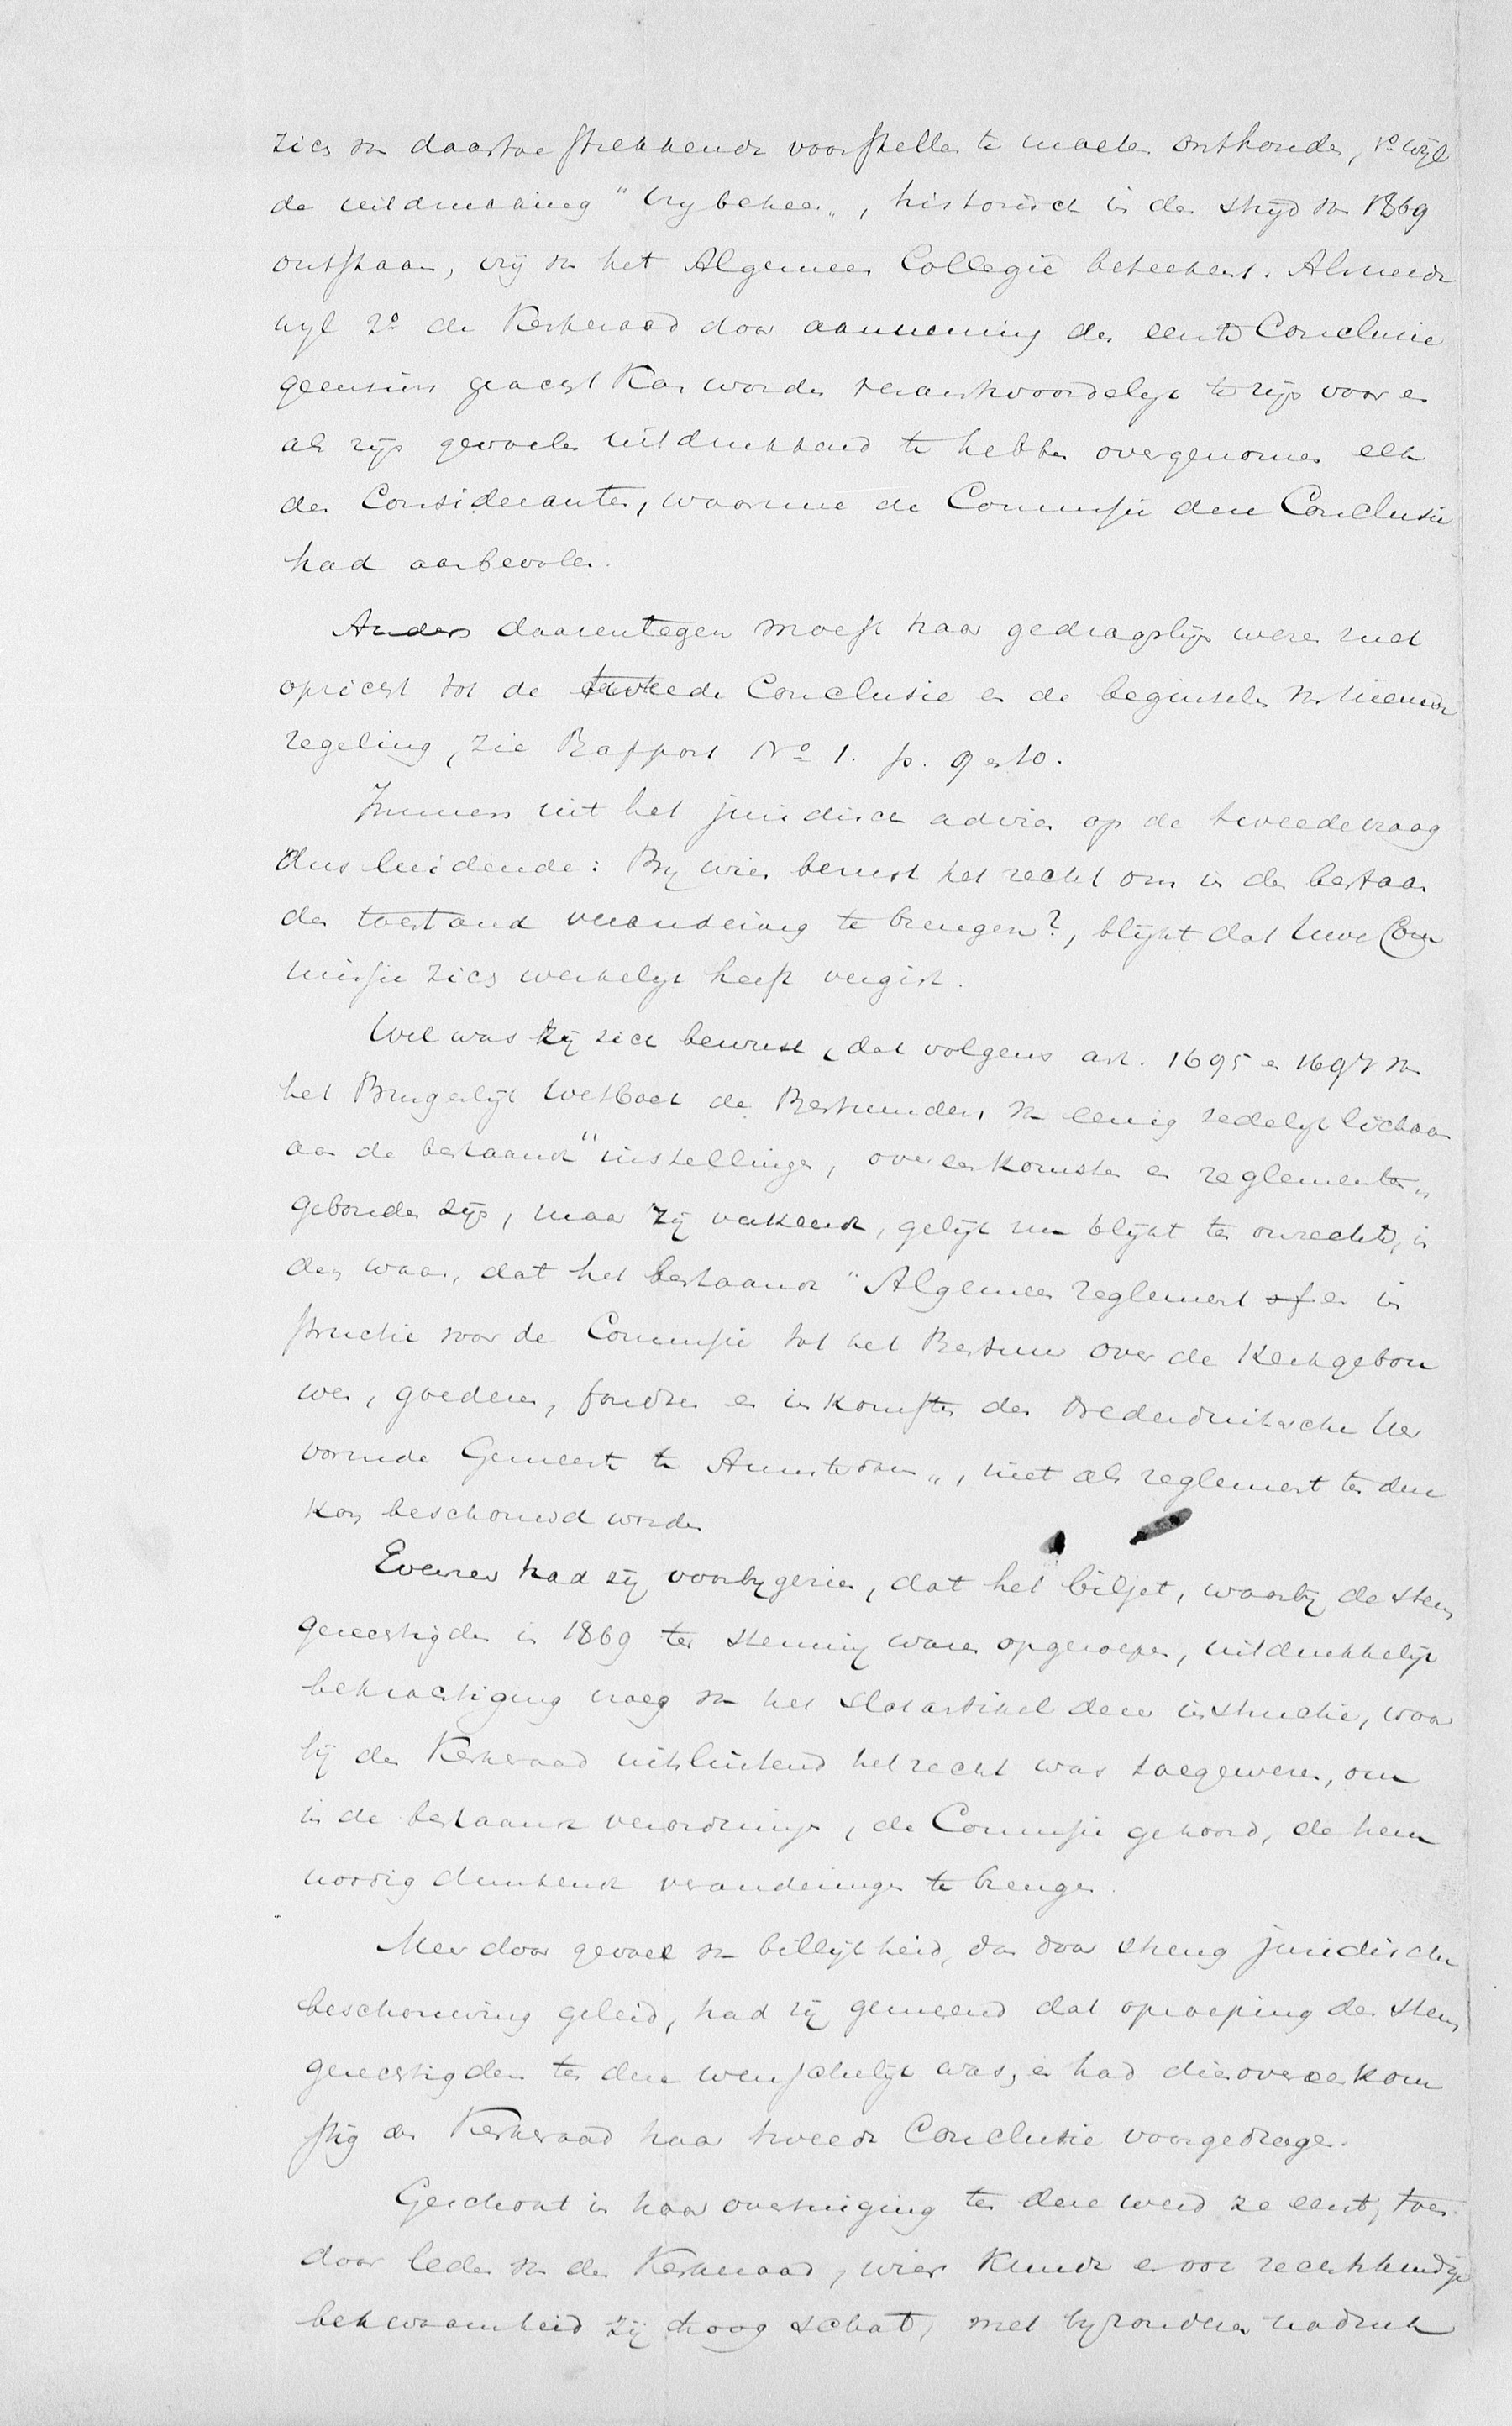 zich van daartoe strekkende voorstellen te moeten onthouden, 1o. wijl
de uitdrukking "vrij beheer", historisch in den strijd van 1869
ontstaan, vrij van het Algemeen Collegie beteekent. Alsmede
wijl 2o. de Kerkeraad door aanneming der eerste Conclusie
geenszins geacht kan worden verantwoordelijk te zijn voor en
als zijn gevoelen uitdrukkend te hebben overgenomen elk
der Consideranten, waarmee de Commissie deze Conclusie
had aanbevolen.
Anders daarentegen moest haar gedragslijn wezen met
opzicht tot de tweede Conclusie en de beginselen van nieuwe
regeling, zie Rapport No 1. p. 9 en 10.
Immers uit het juridisch advies op de tweede vraag
dus luidende: By wien berust het recht om in den bestaan
den toestand verandering te brengen?, blijkt dat Uwe Com
missie zich werkelijk heeft vergist.
Wel was zij zich bewust, dat volgens art. 1695 en 1697 van
het Burgerlijk Wetboek de Bestuurders van eenig zedelijk lichaam
aan de bestaande "instellingen, overeenkomsten en reglementen"
gebonden zijn, maar zij verkeerde, gelijk nu blijkt ten onrechte, in
den waan, dat het bestaande "Algemeen reglement of en in
structie voor de Commissie tot het Bestuur over de Kerkgebou
wen, goederen, fondsen en inkomsten der Nederduitsche Her
vormde Gemeente te Amsterdam", niet als reglement te dezen
kon beschouwd worden
Evenzeer had zij voorbijgezien, dat het biljet, waarbij de stem
gerechtigden in 1869 ter stemming waren opgeroepen, uitdrukkelijk
bekrachtiging vroeg van het slotartikel dezer instructie, waar
bij den Kerkeraad uitsluitend het recht was toegewezen, om
in de bestaande verordeningen, de Commissie gehoord, de hem
noodig dunkende veranderingen te brengen.
Meer door gevoel van billijkheid, dan door streng juridische
beschouwing geleid, had zij gemeend dat oproeping der stem
gerechtigden te dezen wenschelijk was, en had dienovereenkom
stig den Kerkeraad haar tweede Conclusie voorgedragen.
Geschokt in haar overtuiging te dezen werd ze eerst, toen
door leden van den Kerkeraad, wier kunde en ook rechtskundige
bekwaamheid zij hoog schat, met bijzonderen nadruk